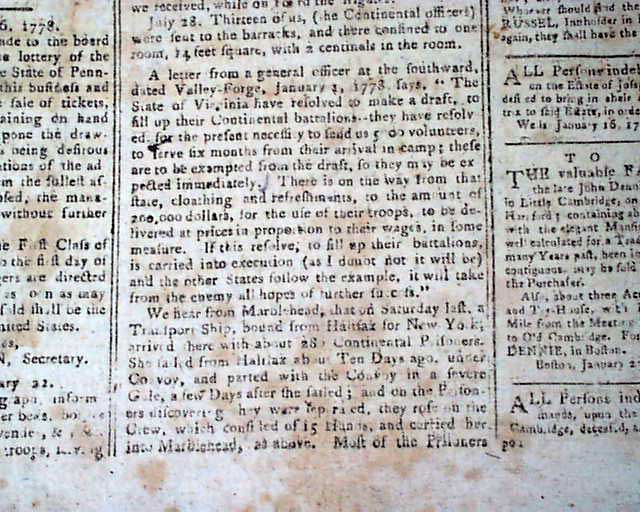 6. 1778.
ade to the board
e lottery of the
e State of Penn-
this business and
e sale of tickets,
aining on hand
pone the draw-
s being desirous
ctions of the ad
m the fullest as-
osed, the mana-
without further
he First Class of
o the first day of
gers are directed
as may
ld shall be the
nited States.
N, Secretary.
ary 22.
inform
troops,
we received, while on
July 28. Thirteen of us, (the Continental officers)
were sent to the barracks, and there confined to one
room, 14 feet square, with 2 centinals in the room.
A letter from a general officer at the southward,
dated Valley-Forge, January 3, 1778, says, " The
State of Virginia have resolved to make a draft, to
fill up their Continental battalions--they have resolv
ed, for the present necessity to send us 5000 volunteers,
to serve six months from their arrival in camp; these
are to be exempted from the draft, so they may be ex
pected immediately. There is on the way from that
state, cloathing and refreshments, to the amount of
200,000 dollars, for the use of their troops, to be de-
livered at prices in proportion to their wages, in some
measure. If this resolve, to fill up their battalions,
is carried into execution (as I doubt not it will be)
and the other States follow the example, it will take
from the enemy all hopes of further success."
We hear from Marblehead, that on Saturday last, a
Transport Ship, bound from Halifax for New York,
arrived there with about 280 Continental Prisoners.
She sailed from Halifax about Ten Days ago, under
Convoy, and parted with the Convoy in a severe
Gale, a few Days after she sailed; and on the Prison-
ers discovering they were separated, they rose on the
Crew, which consisted of 15 Hands, and carried her
into Marblehead, as above. Most of the Prisoners
Whoever should find the
RUSSEL, Innholder in
again, they shall have the
ALL Persons indeb
on the Estate of Jos
desired to bring in their
tra to said Estate, in order
January 16, 17
T O
THE valuable FA
the late John Denn
in Little Cambridge, on
containing a
with the elegant Mansi
well calculated for a Tra
many Years past, been in
contiguous may be sold
the Purchaser.
Also, about three Ac
and House, with
Mile from the Meeting
to Old Cambridge. For
DENNIE, in Boston.
Boston, January 2
ALL Persons ind
mands, upon the
Cambridge, deceased, a